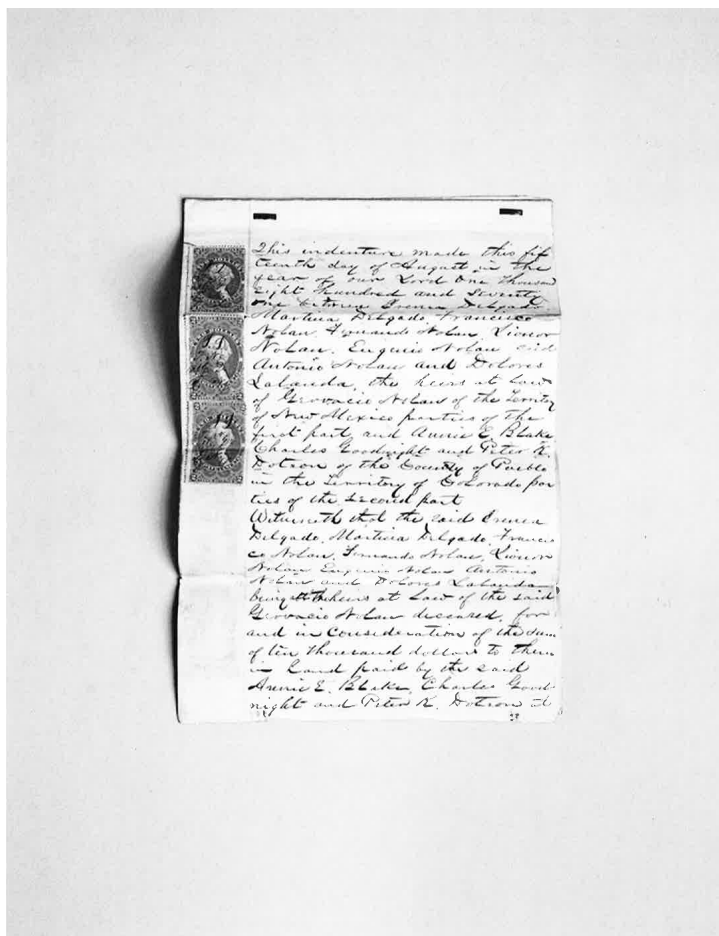 This indenture made this fif
teenth day of August in the
year of our Lord One Thousand
Eight Hundred and Seventy
One between Irenea Delgado
Martina Delgado Francisco
Nolan, Fernando Nolan Lionor
Nolan. Eugenio Nolan and
Antonio Nolan and Dolores
Lalanda, the heirs at Law
of Gervacio Nolan of the Territory
of New Mexico parties of the
first part, and Annie E. Blake
Charles Goodnight and Peter K.
Dotson of the County of Pueblo
in the Territory of Colorado par
ties of the second part
Witnesseth that the said Irenea
Delgado, Martina Delgado, Francis
co Nolan, Fernando Nolan, Lionor
Nolan Eugenio Nolan Antonio
Nolan and Dolores Lalanda
being the heirs at Law of the said
Gervacio Nolan deceased, for
and in Consideration of the sum
of ten thousand dollars to them
in hand paid by the said
Annie E. Blake, Charles Good
night and Peter K. Dotson